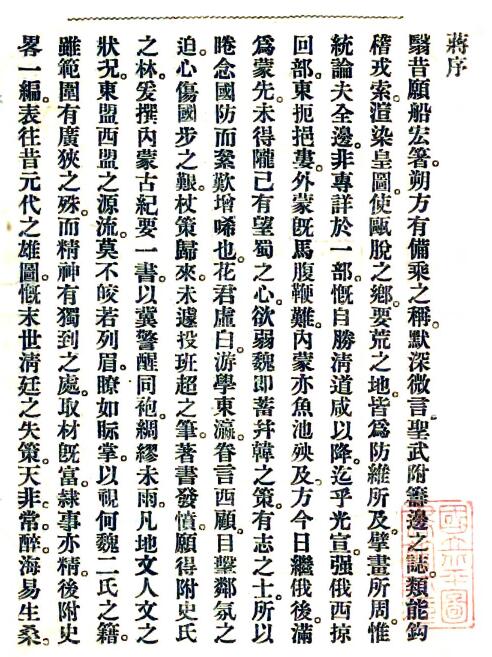 蔣序
翳昔願船宏箸。朔方有備乘之稱。默深微言。聖武附籌邊之誌。類能鈎
稽戎索。渲染皇圖。使甌脫之鄉。要荒之地。皆爲防維所及。擘畫所周。惟
統論夫全邊。非專詳於一部。慨自勝清道咸以降。迄乎光宣。强俄西掠
回部。東扼挹婁。外蒙旣馬腹鞭難。內蒙亦魚池殃及。方今日繼俄後。滿
爲蒙先。未得隴已有望蜀之心。欲弱魏卽蓄幷韓之策。有志之士。所以
睠念國防而絫歎增唏也。花君虛白。游學東瀛。眷言西顧。目擊鄰氛之
迫。心傷國步之艱。杖策歸來。未遽投班超之筆。著書發憤。願得附史氏
之林。爰撰內蒙古紀要一書。以冀警醒同袍。綢繆未雨。凡地文人文之
狀况。東盟西盟之源流。莫不皎若列眉。瞭如眎掌。以視何魏二氏之籍。
雖範圍有廣狹之殊。而精神有獨到之處。取材旣富。隸事亦精。後附史
畧一編。表往昔元代之雄圖。慨末世清廷之失策。天非常醉。海易生桑。